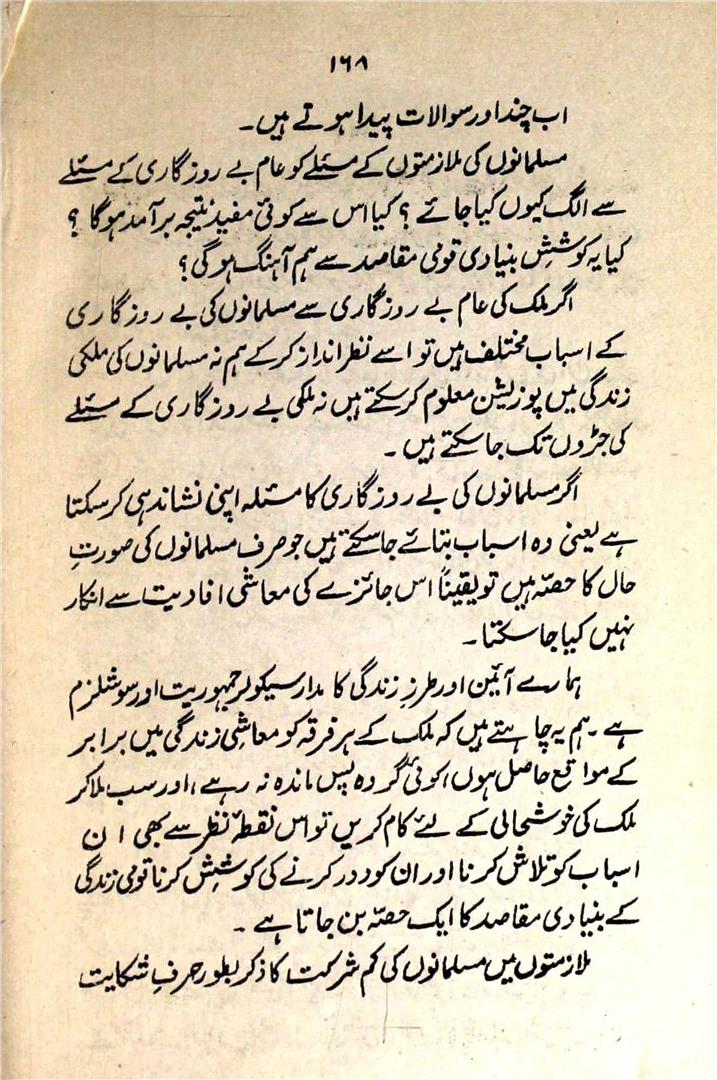 ۱۶۸
اب چند اور سوالات پیدا ہوتے ہیں۔
مسلمانوں کی ملازمتوں کے مسئلے کو عام بے روزگاری کے مسئلے
سے الگ کیوں کیا جائے ؟ کیا اس سے کوئی مفید نتیجہ برآمد ہوگا ؟
کیا یہ کوشش بنیادی قومی مقاصد سے ہم آہنگ ہوگی ؟
اگر ملک کی عام بے روزگاری سے مسلمانوں کی بے روزگاری
کے اسباب مختلف ہیں تو اسے نظر انداز کر کے ہم نہ مسلمانوں کی ملکی
زندگی میں پوزیشن معلوم کر سکتے ہیں نہ ملکی بے روزگاری کے مسئلے
کی جڑوں تک جا سکتے ہیں ۔
اگر مسلمانوں کی بے روزگاری کا مسئلہ اپنی نشاندہی کر سکتا
ہے یعنی وہ اسباب بتائے جا سکتے ہیں جو صرف مسلمانوں کی صورتِ
حال کا حصّہ ہیں تو یقیناً اس جائزے کی معاشی افادیت سے انکار
نہیں کیا جا سکتا ۔
ہمارے آئین اور طرزِ زندگی کا مدار سیکولر جمہوریت اور سوشلزم
ہے ۔ ہم یہ چاہتے ہیں کہ ملک کے ہر فرقہ کو معاشی زندگی میں برابر
کے مواقع حاصل ہوں، کوئی گروہ پس ماندہ نہ رہے، اور سب ملا کر
ملک کی خوشحالی کے لئے کام کریں تو اس نقطۂ نظر سے بھی ان
اسباب کو تلاش کرنا اور ان کو دور کرنے کی کوشش کرنا قومی زندگی
کے بنیادی مقاصد کا ایک حصّہ بن جاتا ہے ۔
ملازمتوں میں مسلمانوں کی کم شرکت کا ذکر بطور حرفِ شکایت